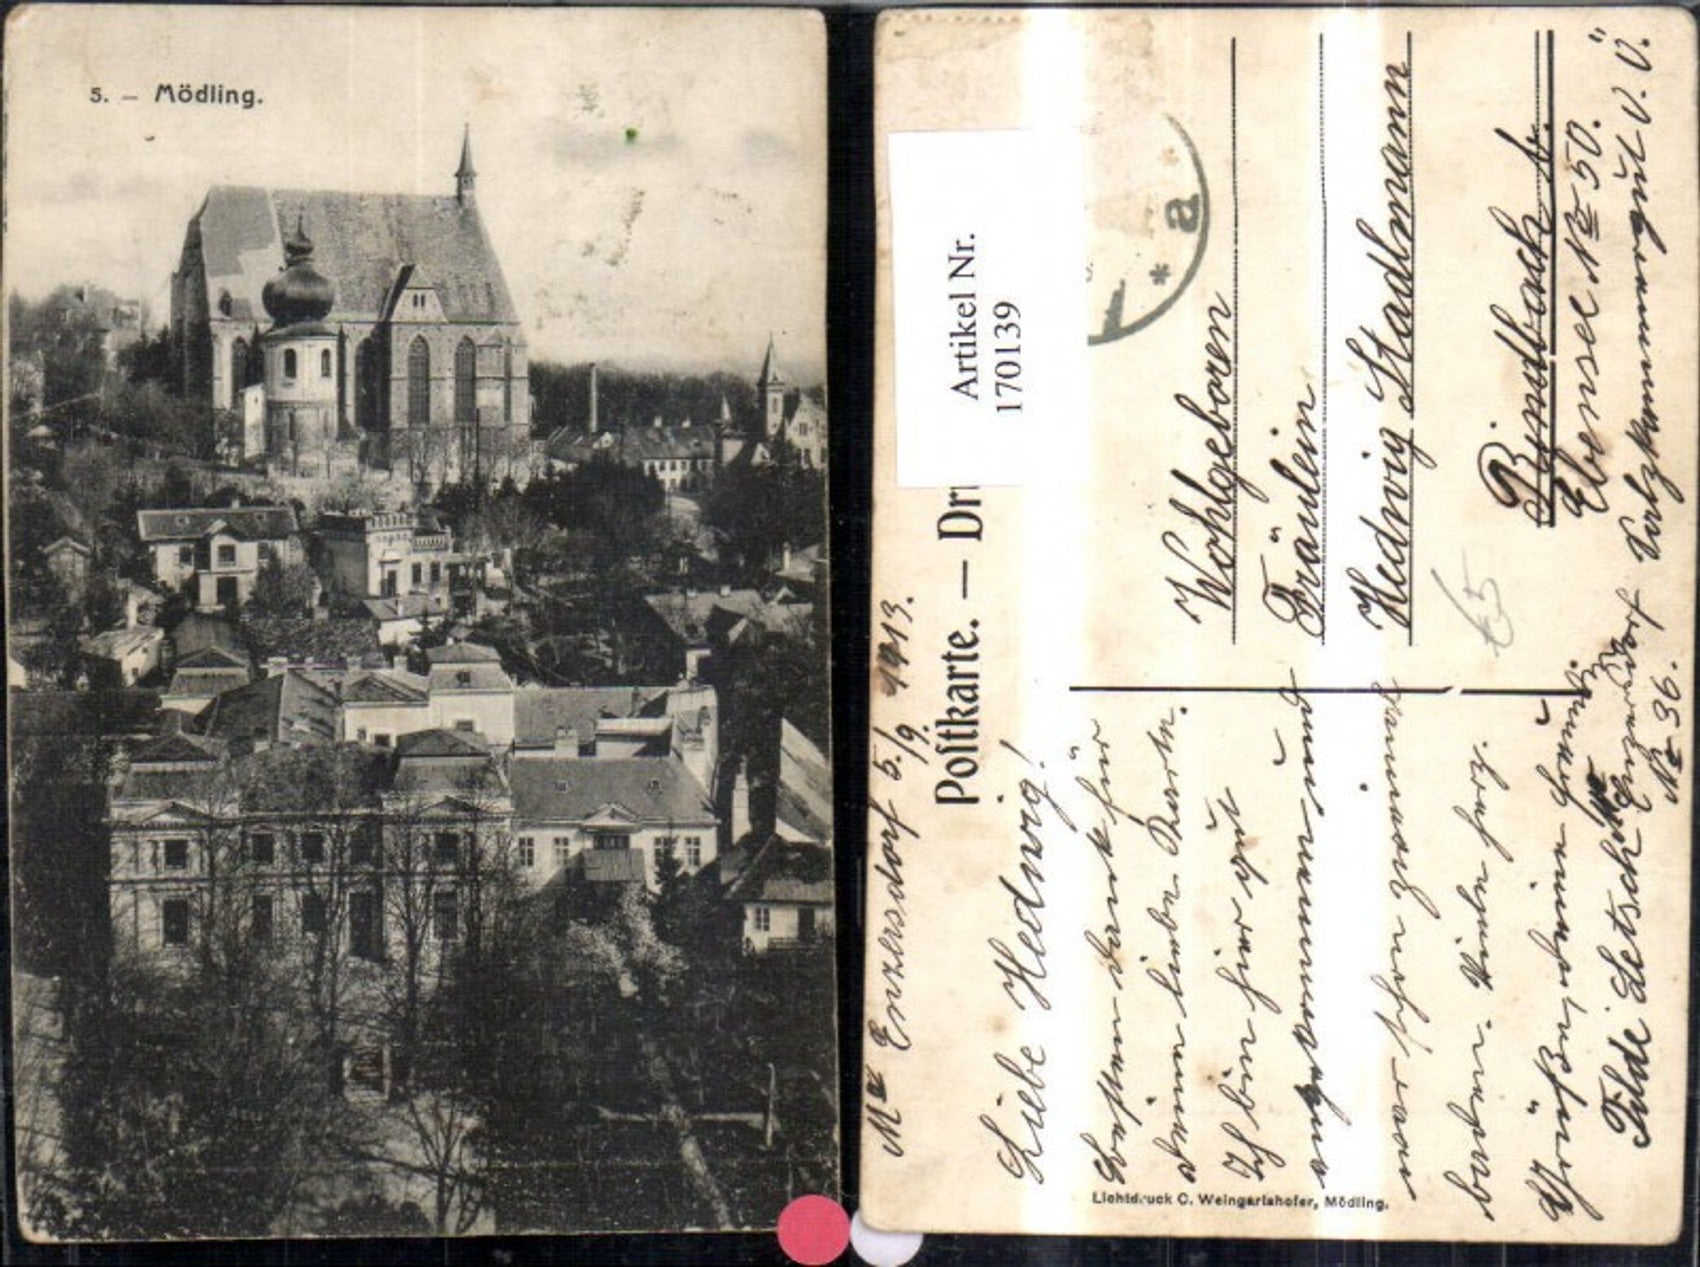 5. — Mödling.
Artikel Nr.
170139
Postkarte. — Dr
Ma Enzersdorf 5./9. 1913.
Liebe Hedwig!
Besten Dank für
deine liebe Karte.
Ich bin hier gut
angekommen und
baden. Viele herz.
Grüße, deine Freundin
Tilde Letschka
Enzersdorf
No 36.
Wohlgeboren
Fräulein
Hedwig Stadlmann
Rindbach
Ebensee No 50.
Salzkammergut O. Ö.
a
Lichtdruck C. Weingartshofer, Mödling.